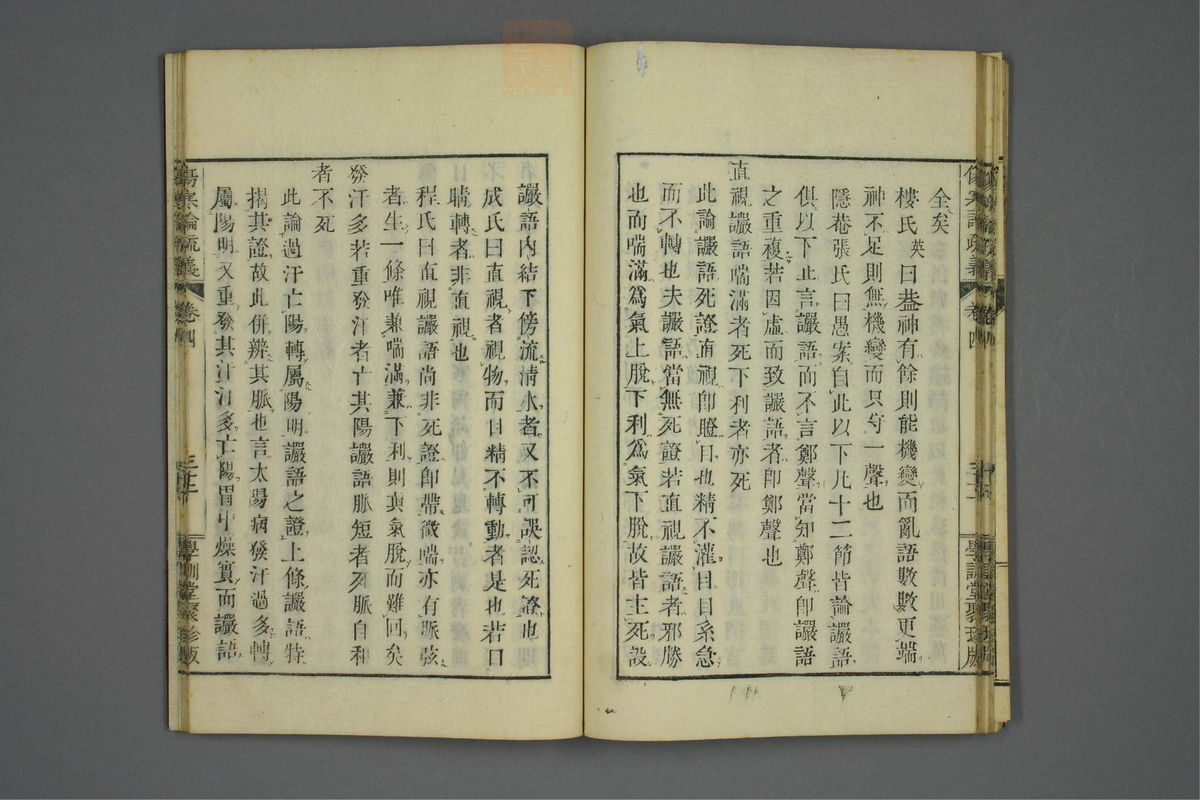 全矣
樓氏英曰蓋神有餘則能機變而亂語數數更端
神不足則無機變而只守一聲也
隱菴張氏曰愚案自此以下凡十二節皆論讝語
俱以下止言讝語而不言鄭聲當知鄭聲卽讝語
之重複若因虛而致讝語者卽鄭聲也
直視讝語喘滿者死下利者亦死
此論讝語死證直視卽瞪目也精不灌目目系急
而不轉也夫讝語當無死證若直視讝語者邪勝
也而喘滿爲氣上脫下利爲氣下脫故皆主死設
讝語內結下傍流淸水者又不可誤認死證也
成氏曰直視者視物而目精不轉動者是也若目
睛轉者非直視也
程氏曰直視讝語尚非死證卽帶微喘亦有脈弦
者生一條唯兼喘滿兼下利則眞氣脫而難回矣
發汗多若重發汗者亡其陽讝語脈短者死脈自和
者不死
此論過汗亡陽轉屬陽明讝語之證上條讝語特
揭其證故此併辨其脈也言太陽病發汗過多轉
屬陽明又重發其汗汗多亡陽胃中燥實而讝語
傷寒論疏義
卷四
學訓堂聚珍版